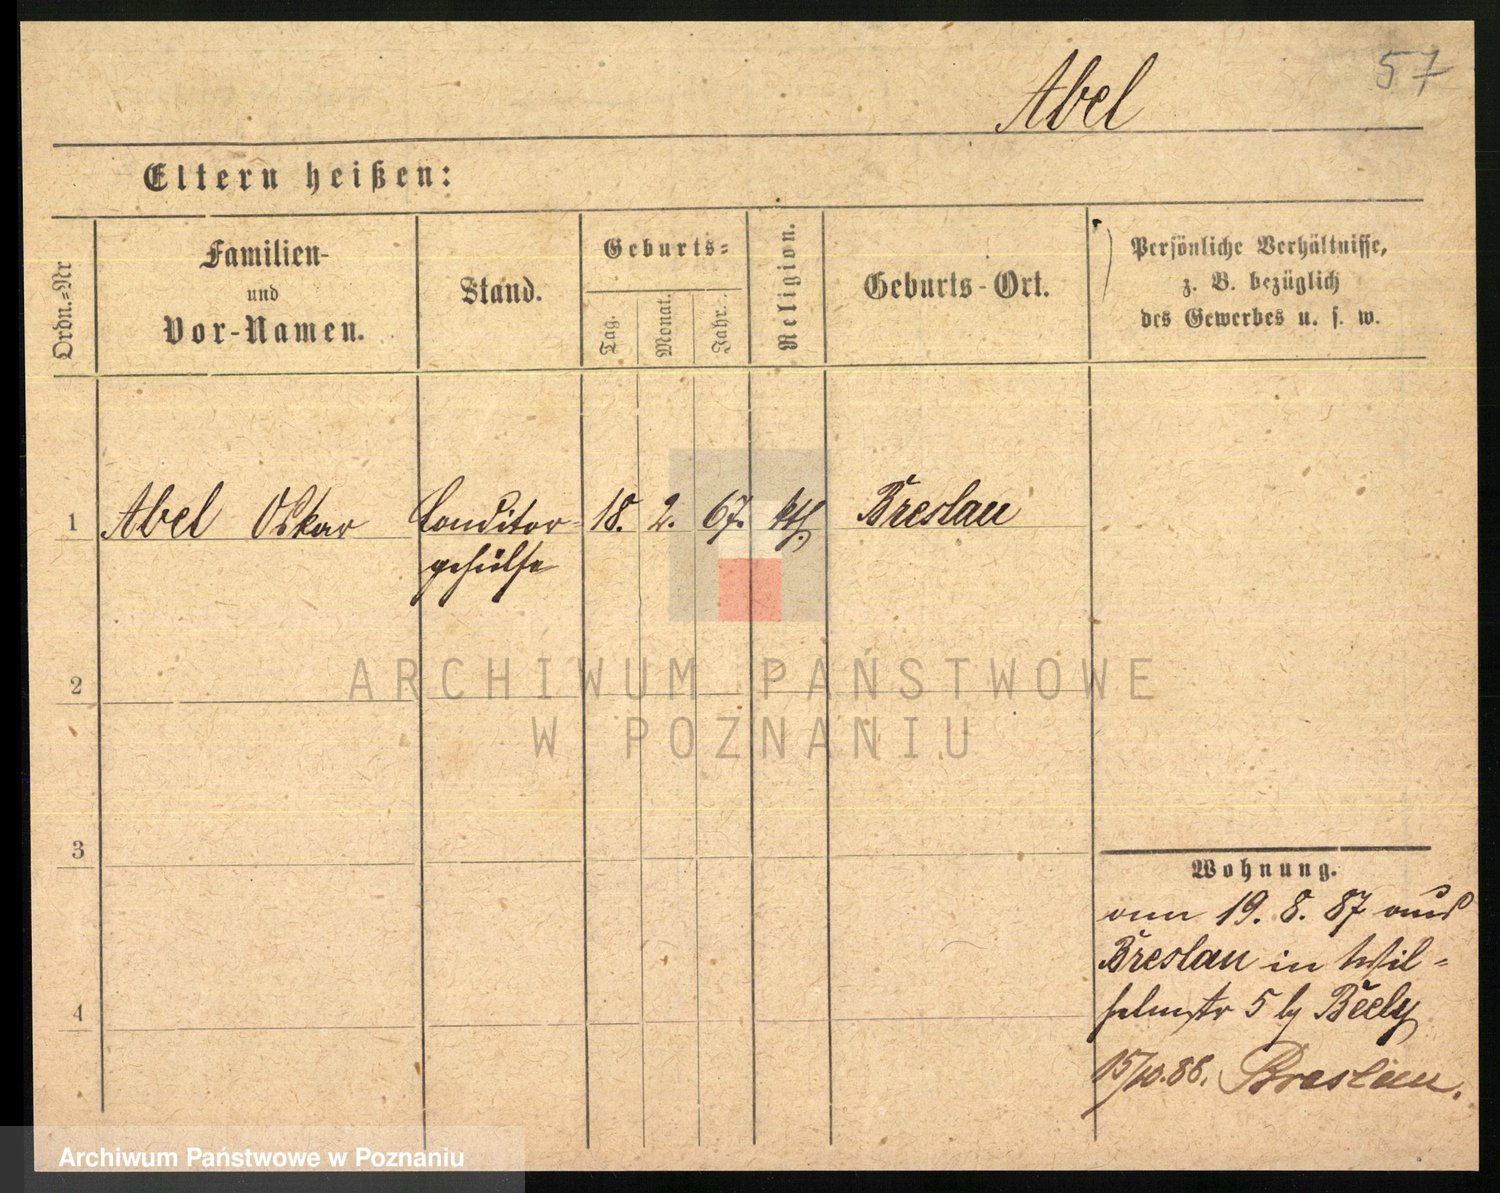 57
Abel
Eltern heißen:
Ordn.=Nr
Familien-
und
Vor-Namen.
Stand.
Geburts=
Tag.
Monat.
Jahr.
Religion.
Geburts-Ort.
Persönliche Verhältnisse,
z. B. bezüglich
des Gewerbes u. s. w.
1 Abel Oskar Conditor= 18. 2. 67. kth. Breslau
gehülfe
2
ARCHIWUM PAŃSTWOWE
W POZNANIU
3
Wohnung.
vom 19. 8. 87 aus
Breslau in Wil=
helmstr 5 by Beely
4
15/10.88. Breslau.
Archiwum Państwowe w Poznaniu